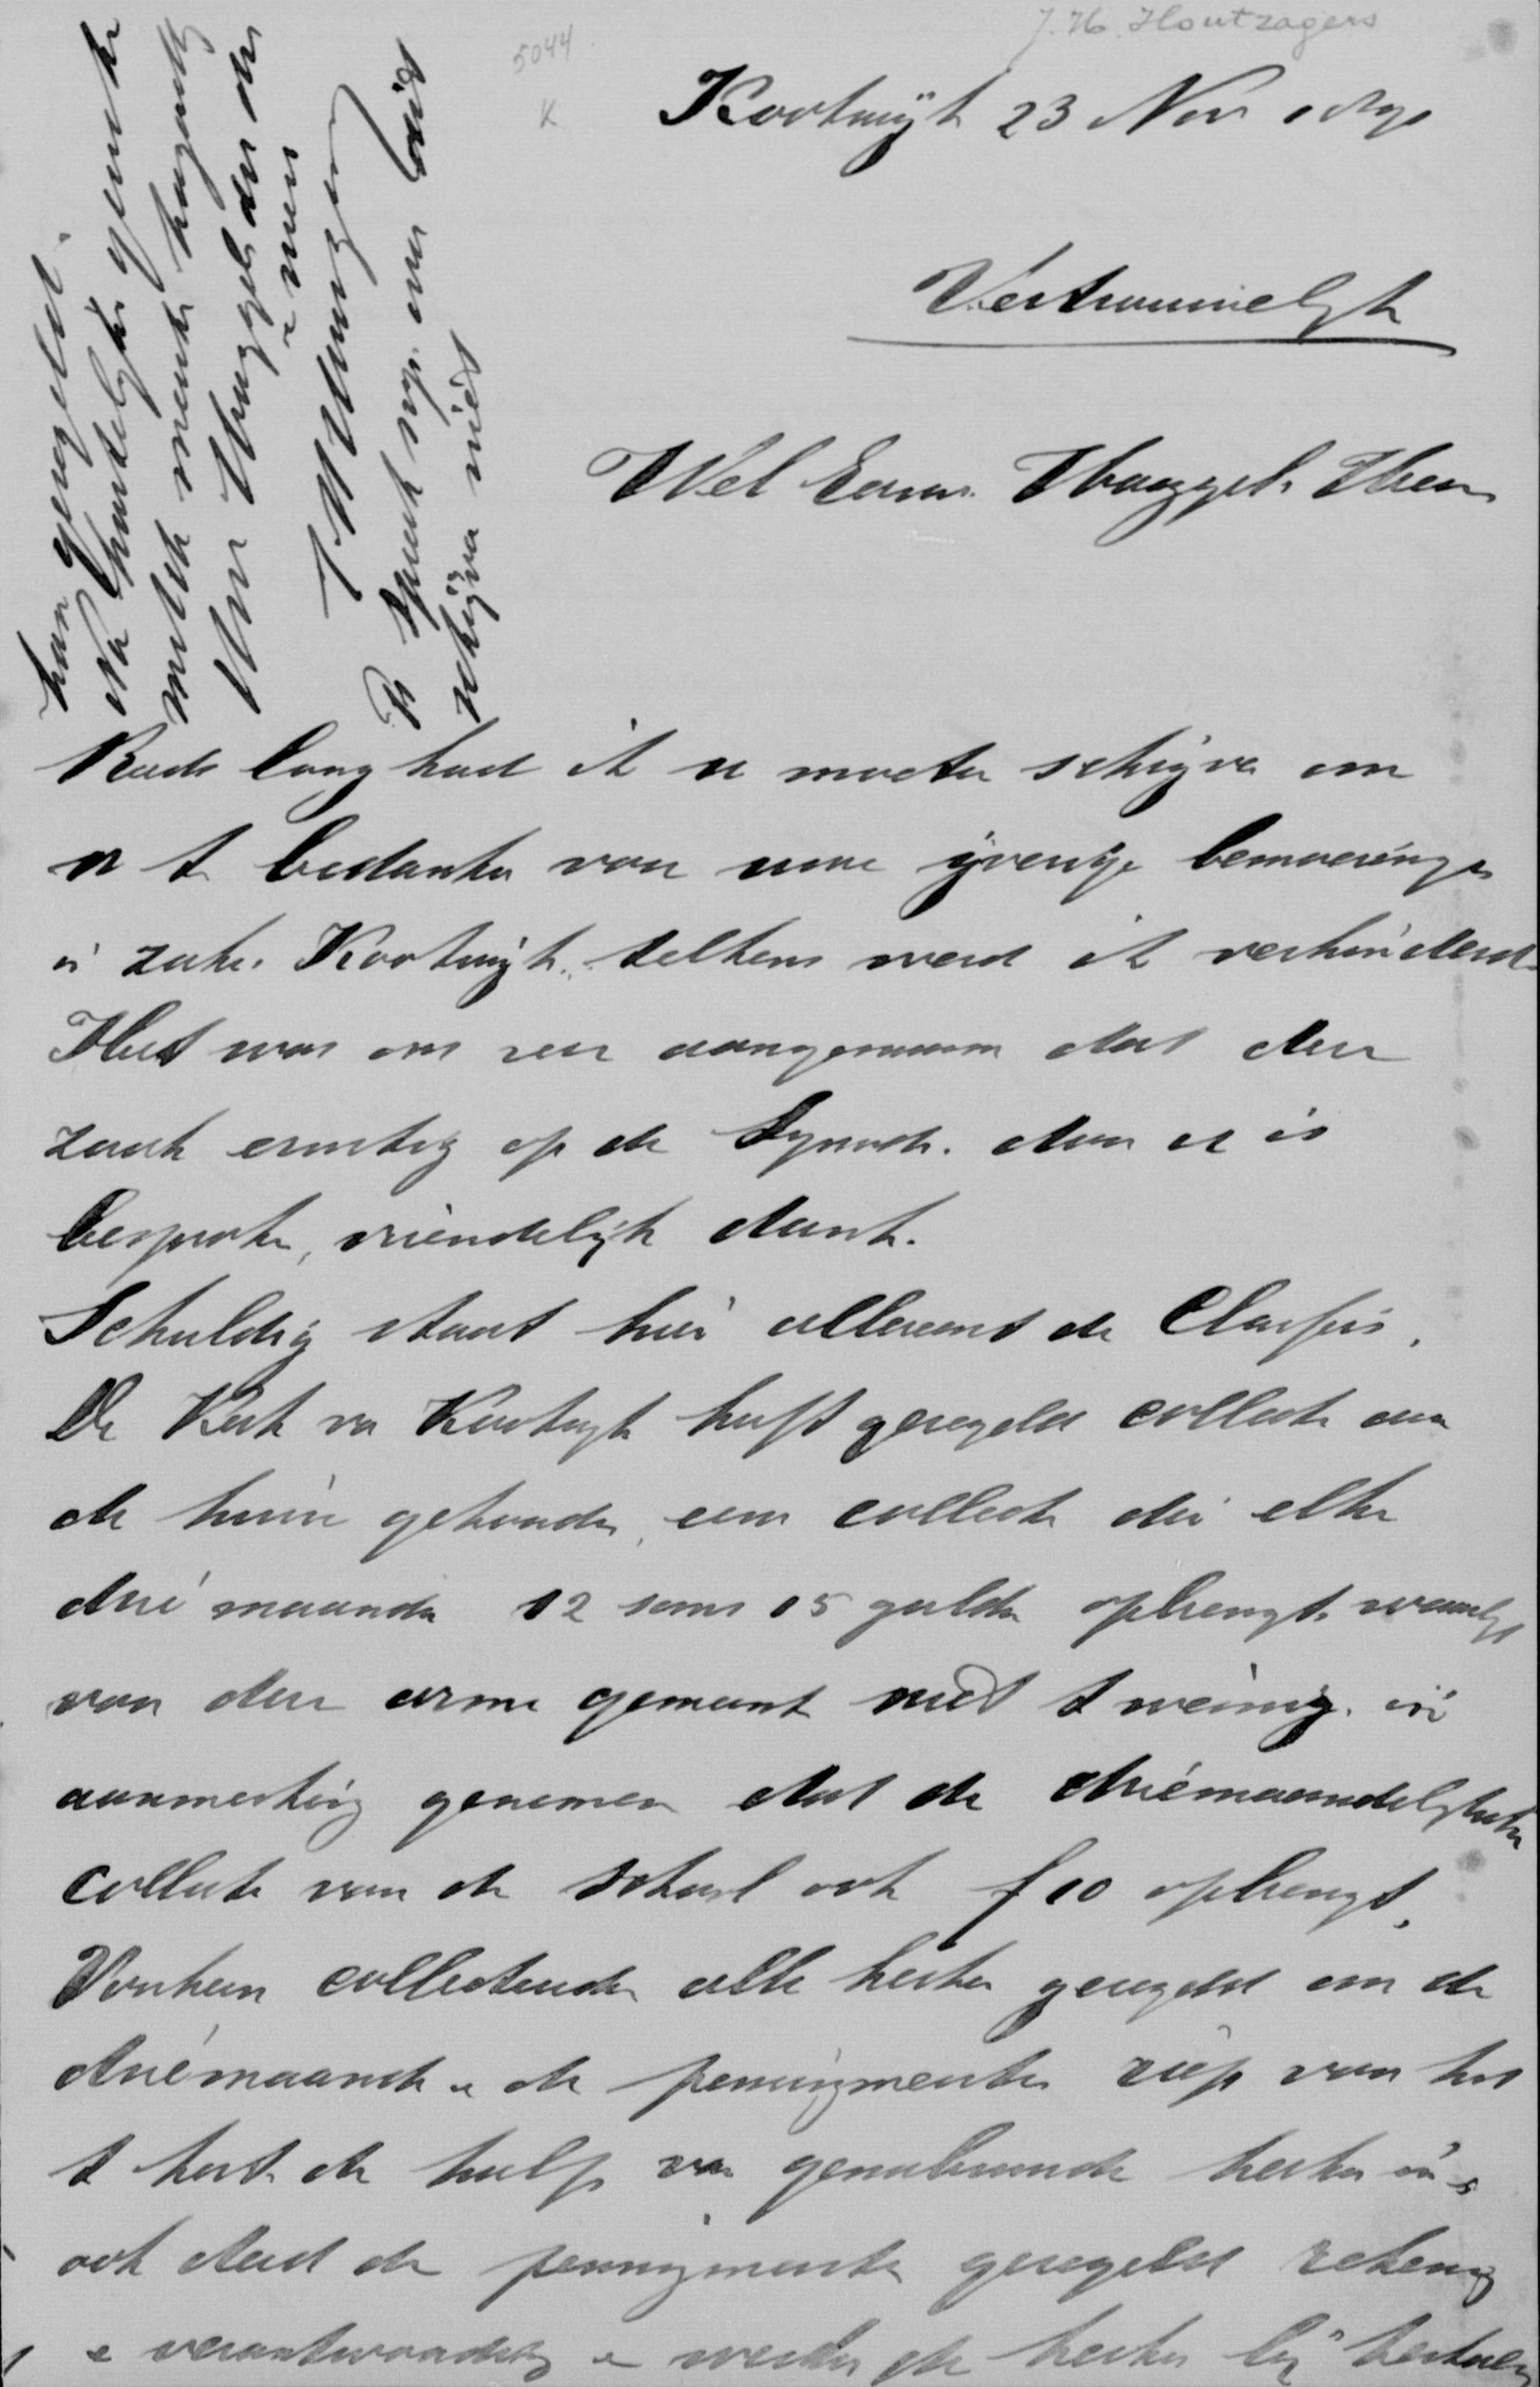 J. H. Houtzagers
5044
K
Kootwijk 23 Nov
Vertrouwelijk
Wel Eerw. Hooggel. Heer
Reeds lang had ik u moeten schrijven om
u te bedanken voor uwe ijverige bemoeiingen
in zake Kootwijk. telkens werd ik verhinderd
Het was ons zeer aangenaam dat deze
zaak ernstig op de Synode. door u is
besproken, vriendelijk dank.
Schuldig staat hier allereerst de Classis.
De Kerk van Kootwijk heeft geregeld collecte aan
de huizen gehouden, eene collecte die elke
drie maanden 12 soms 15 gulden opbrengt. waarlijk
voor deze arme gemeente niet te weinig. in
aanmerking genomen dat de driemaandelijksche
collecte van de school ook f 10 opbrengt.
Voorheen collecteerden alle kerken geregeld om de
driemaanden en de penningmeester riep voor het
te kort de hulp van genabuurde kerken in,
ook deed de penningmeester geregeld rekening
en verantwoording en werden de kerken bij
kan geregeld.
Na hartelijke groeten
met de meeste hoogachting
Uw Hooggel. dw dr
en
J H Houtzagers
P. spreek svp. over
schrijven niet